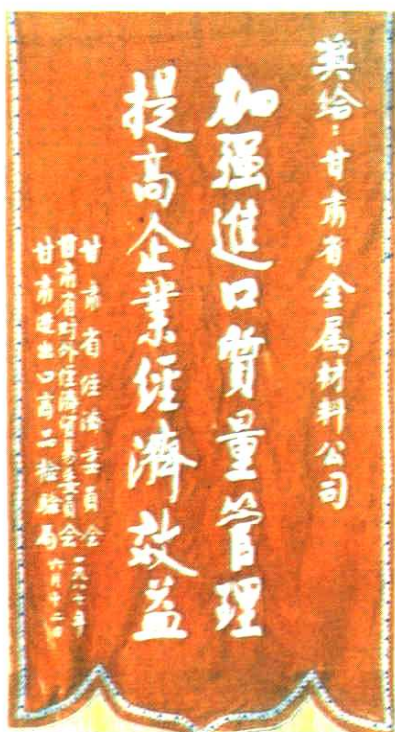 奖给：甘肃省金属材料公司
加强進口質量管理
提高企業經濟效益
甘肃省经济委員会
甘肃省对外经濟贸易委員会
甘肃進出口商品检验局
一九八七年
六月十二日